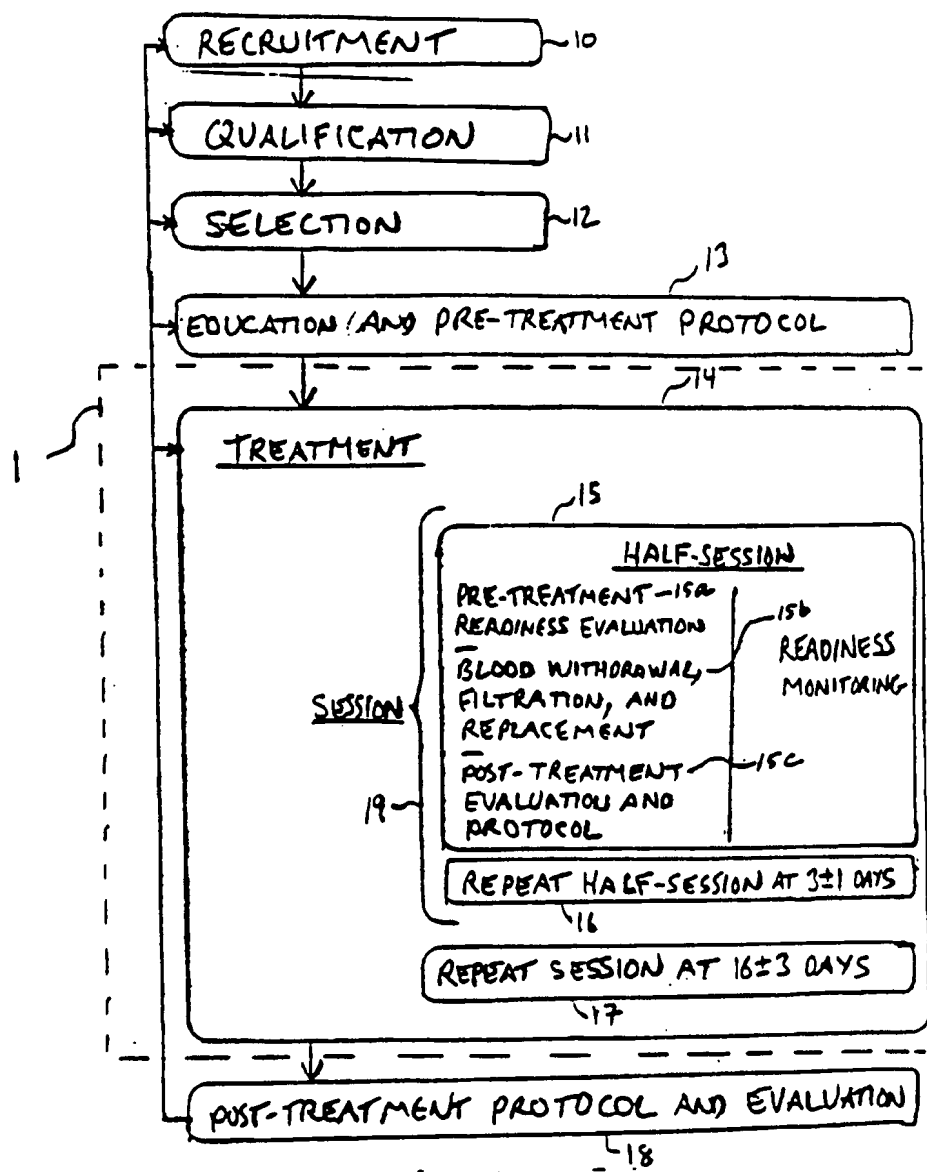 RECRUITMENT 10
QUALIFICATION 11
SELECTION 12
13
EDUCATION/AND PRE-TREATMENT PROTOCOL
14
1
TREATMENT
15
HALF-SESSION
PRE-TREATMENT 15a
READINESS EVALUATION
15b
BLOOD WITHDRAWAL,
FILTRATION, AND
REPLACEMENT
READINESS
MONITORING
SESSION
19
POST-TREATMENT 15c
EVALUATION AND
PROTOCOL
REPEAT HALF-SESSION AT 3±1 DAYS
16
REPEAT SESSION AT 16±3 DAYS
17
POST-TREATMENT PROTOCOL AND EVALUATION
18